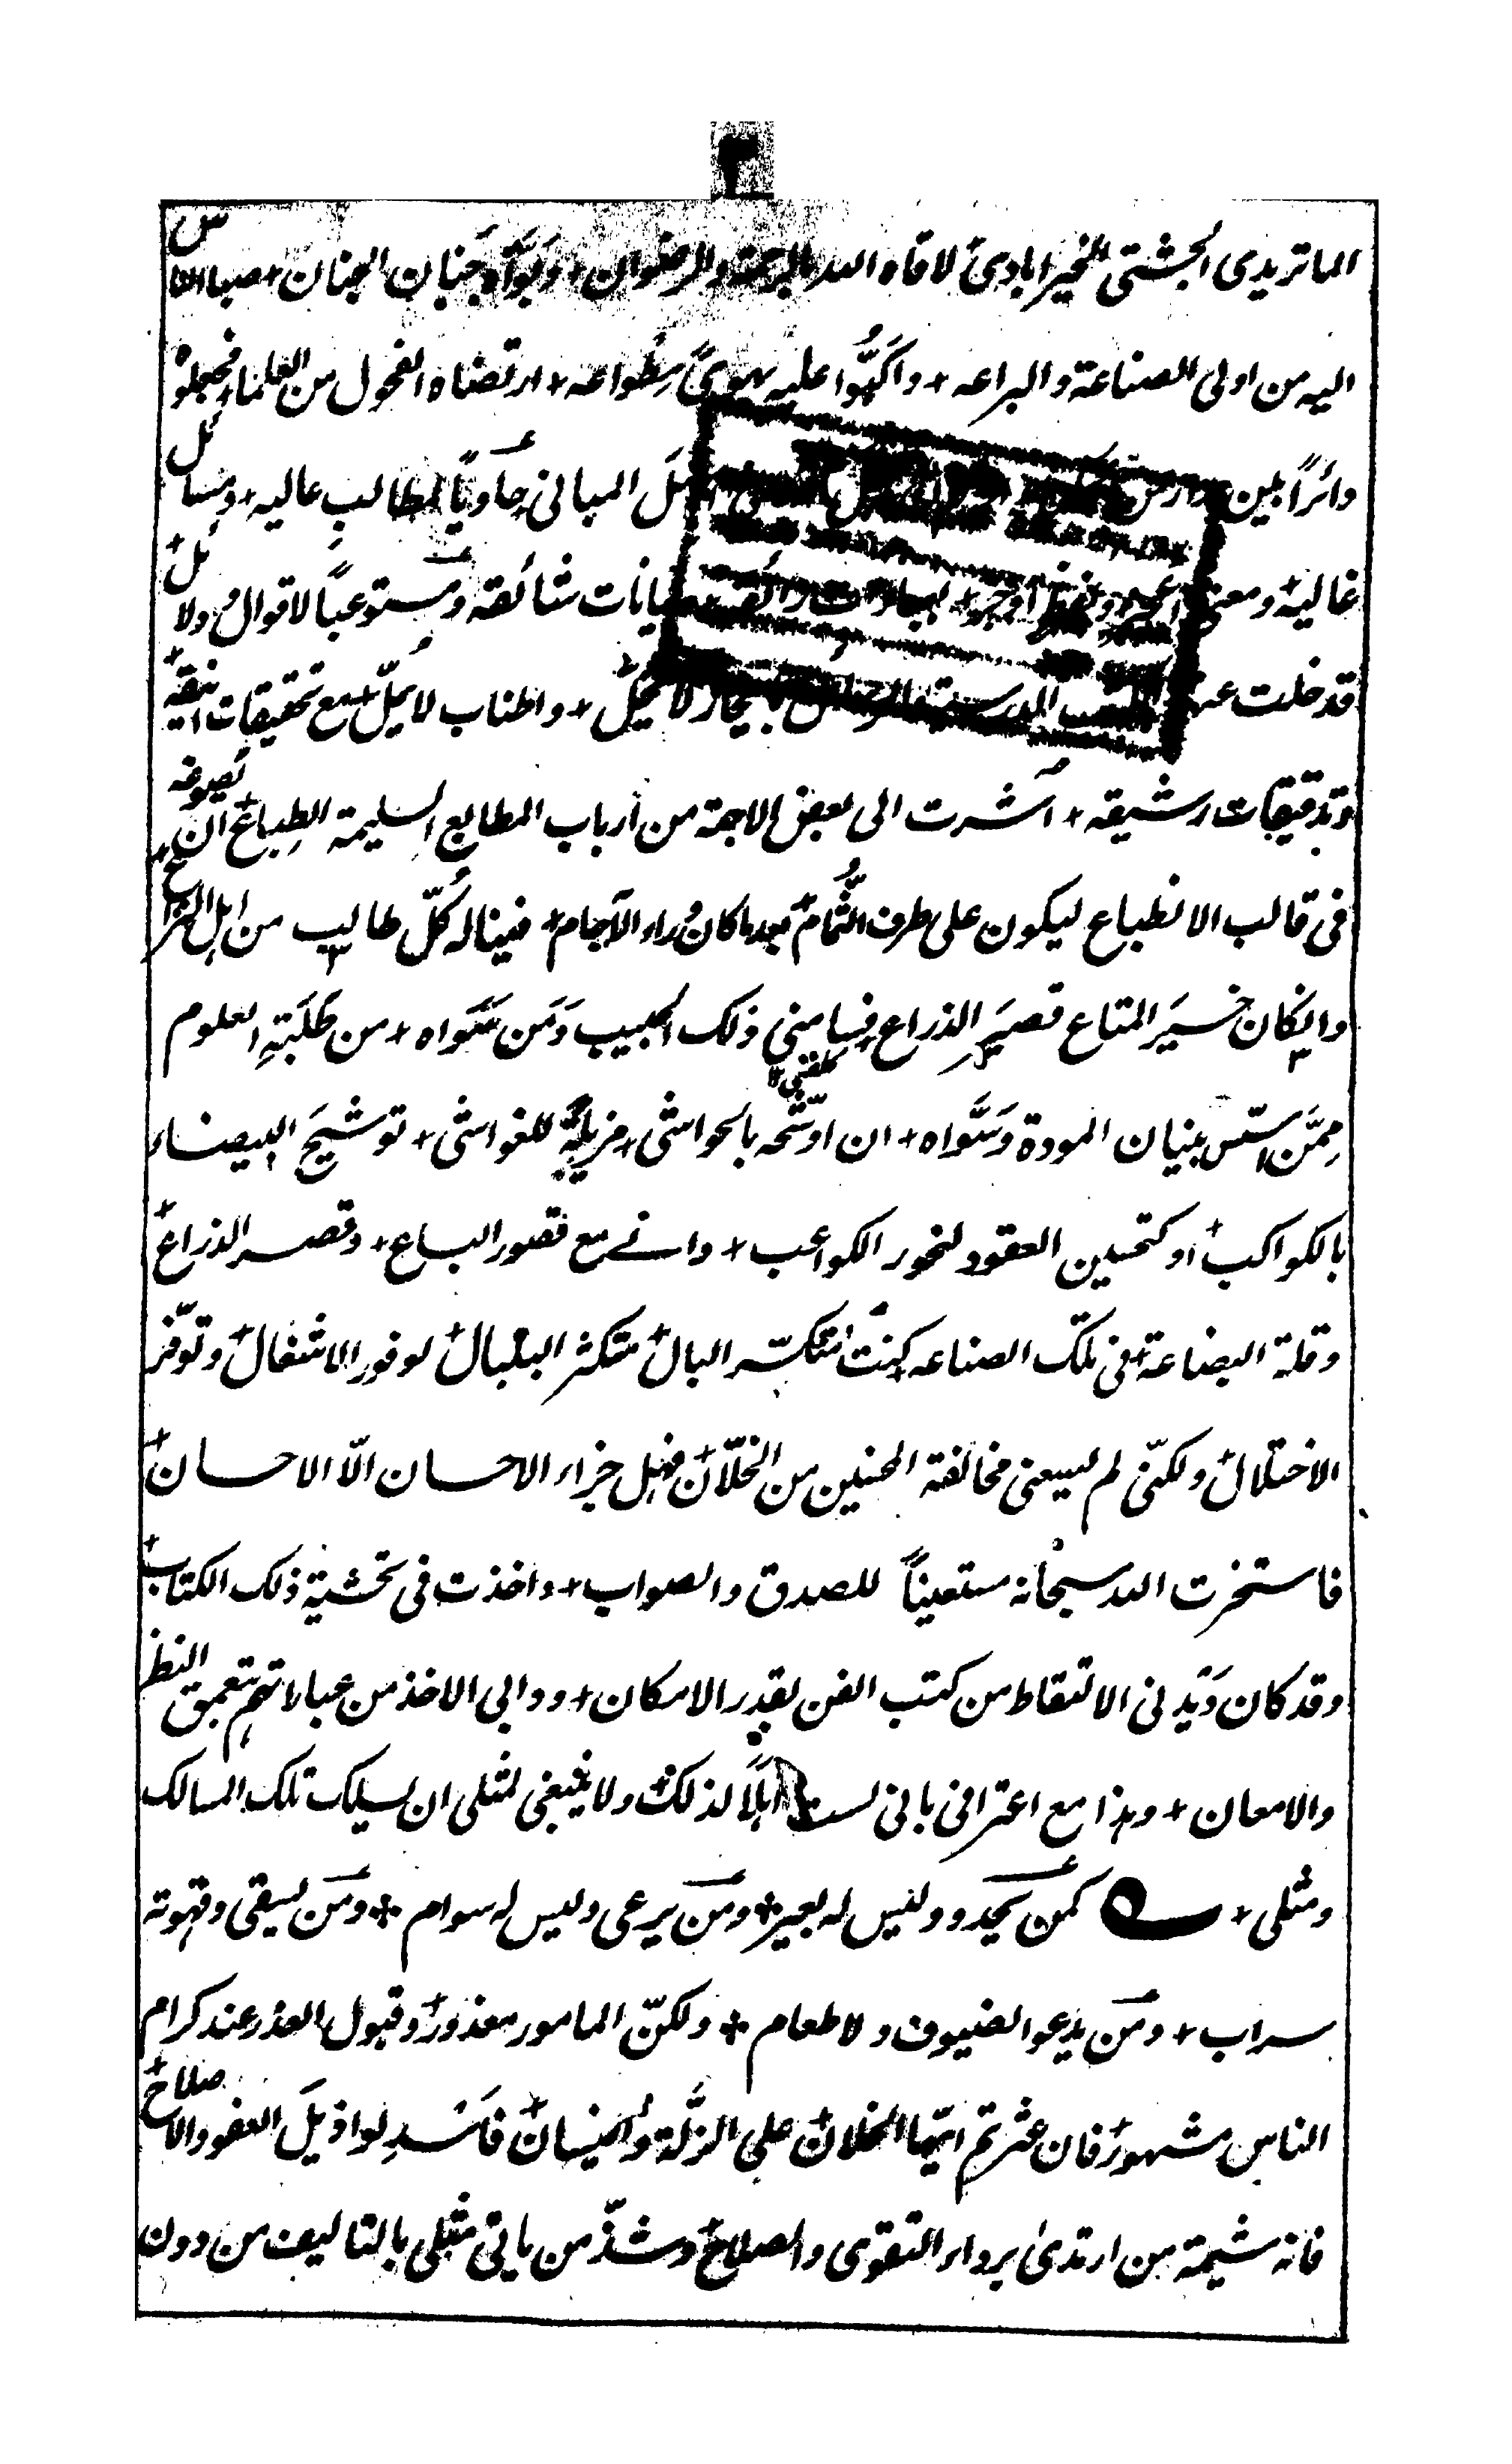 ٣
الماتريدى الجشتى الخيرابادى لاقاه الله بالرحمة والرضوان + وبَوَّأَه جَنبان الجنان + صبا الناس
اليه من اولى الصناعة والبراعه + واَكَبُّوا عليه هوىً وطواعه + ارتضاه الفحول من العلماء + فجعلوه
دائرًا بين المبانى حاويًا لمطالب عاليه + ومسائل
غاليه + ومعنى شائقه ومستوعبًا لاقوال ودلائل +
قد خلت عنها بايجاز لا يُخلّ + واطناب لا يُمِلّ + مع تحقيقات انيقة +
وتدقيقات رشيقه + اشرت الى بعض الاحبة من ارباب المطابع السليمة الطِباع + ان يصوغه
فى قالب الانطباع ليكون على طرف الثُّمام + بعد ما كان وراء الآجام + فيناله كلّ طالب من اهل
وانكان خسيرَ المتاع قصيرَ الذراع + فسامنى ذلك الحبيب وَمَن سَوَاه + من طَلَبَةِ العلوم
مِمَّن اسّس بنيان المودة وَسَوَّاه + ان اوشّحه بالحواشى + مزيلةً للغواشى + توشيحَ البيضاء
بالكواكب + او كتحسين العقود لنحور الكواعب + وانے مع قصور الباع + وقصر الذراع +
وقلة البضاعة + فى تلك الصناعه كنتُ متكسّر البال + متكثر البلبال + لوفور الاشغال + وتوفّر
الاختلال + ولكنّى لم يسعنى مخالفة المحبين من الخلّان + فهل جزاء الاحسان الّا الاحسان +
فاستخرت الله سبحانه مستعينًا للصدق والصواب + واخذت فى تحشية ذلك الكتاب +
وقد كان دَيْدنى الالتقاط من كتب الفن بقدر الامكان + ودابى الاخذ من عباراتهم بتعميق النظر
والامعان + وهذا مع اعترافى بانى لست اَهْلًا لذلك + ولا ينبغى لمثلى ان يسلك تلك المسالك
ومثلى + كمن يحدو وليس له بعير + ومَن يرعى وليس له سوام + ومَن يسقى وقهوته
سراب + ومَن يدعو الضيوف ولا طعام + ولكنّ المامور معذور + وقبول العذر عند كرام
الناس مشهور + فان عثرتم ايّها الخلان على الزَّلّة والنسيان + فاَسْدِلوا ذيلَ العفو والاصلاح +
فانه شيمة من ارتدىٰ برداء التقوى والصلاح + وشذّ من ياتى مثلى بالتاليف من دون